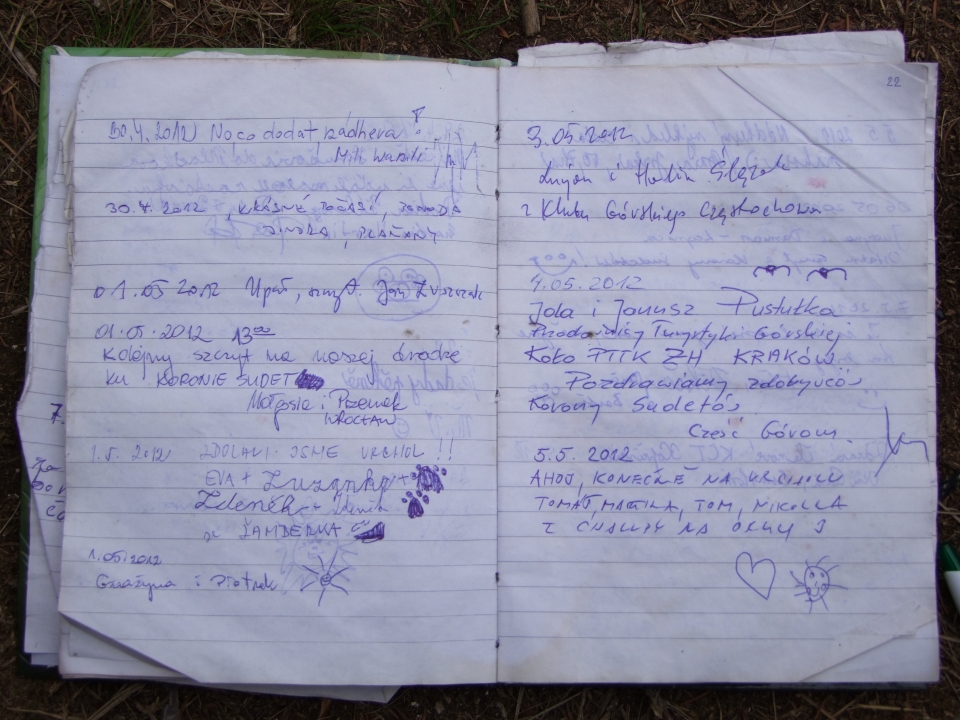 30.4.2012 No co dodat, nádhera!
30.4.2012, KRÁSNÉ POČASÍ,
01.05 2012 Upał,
01.05.2012 13⁰⁰
Kolejny szczyt na naszej drodze
ku KORONIE SUDET
Małgosia i Przemek
WROCŁAW
1.5. 2012 ZDOLALI JSME VRCHOL!!
EVA + Zuzanka +
Zdeněk + Zdeněk
ze ŽAMBERKA
1.05.2012
Grażyna i Piotrek
22
3.05.2012
i Halin Ślęzak
z Klubu Górskiego Częstochowa
4.05.2012
Jola i Janusz Pustułka
Przodownicy Turystyki Górskiej
Koło PTTK ZH KRAKÓW
Pozdrawiamy zdobywców
Korony Sudetów
Cześć Górom
5.5.2012
AHOJ, KONEČNĚ NA VRCHOLU
TOMÁŠ, MARTINA, TOM, NIKOLA
Z CHALUPY NA